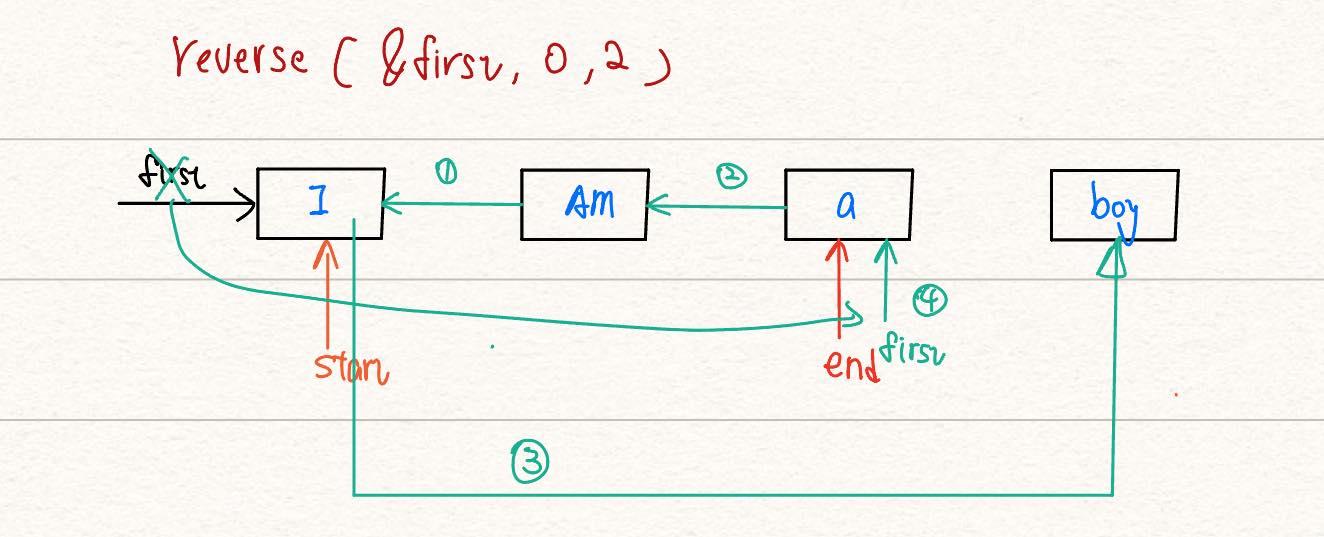 reverse ( &first, 0, 2 )
first
I ① Am ② a boy
④
start end first
③